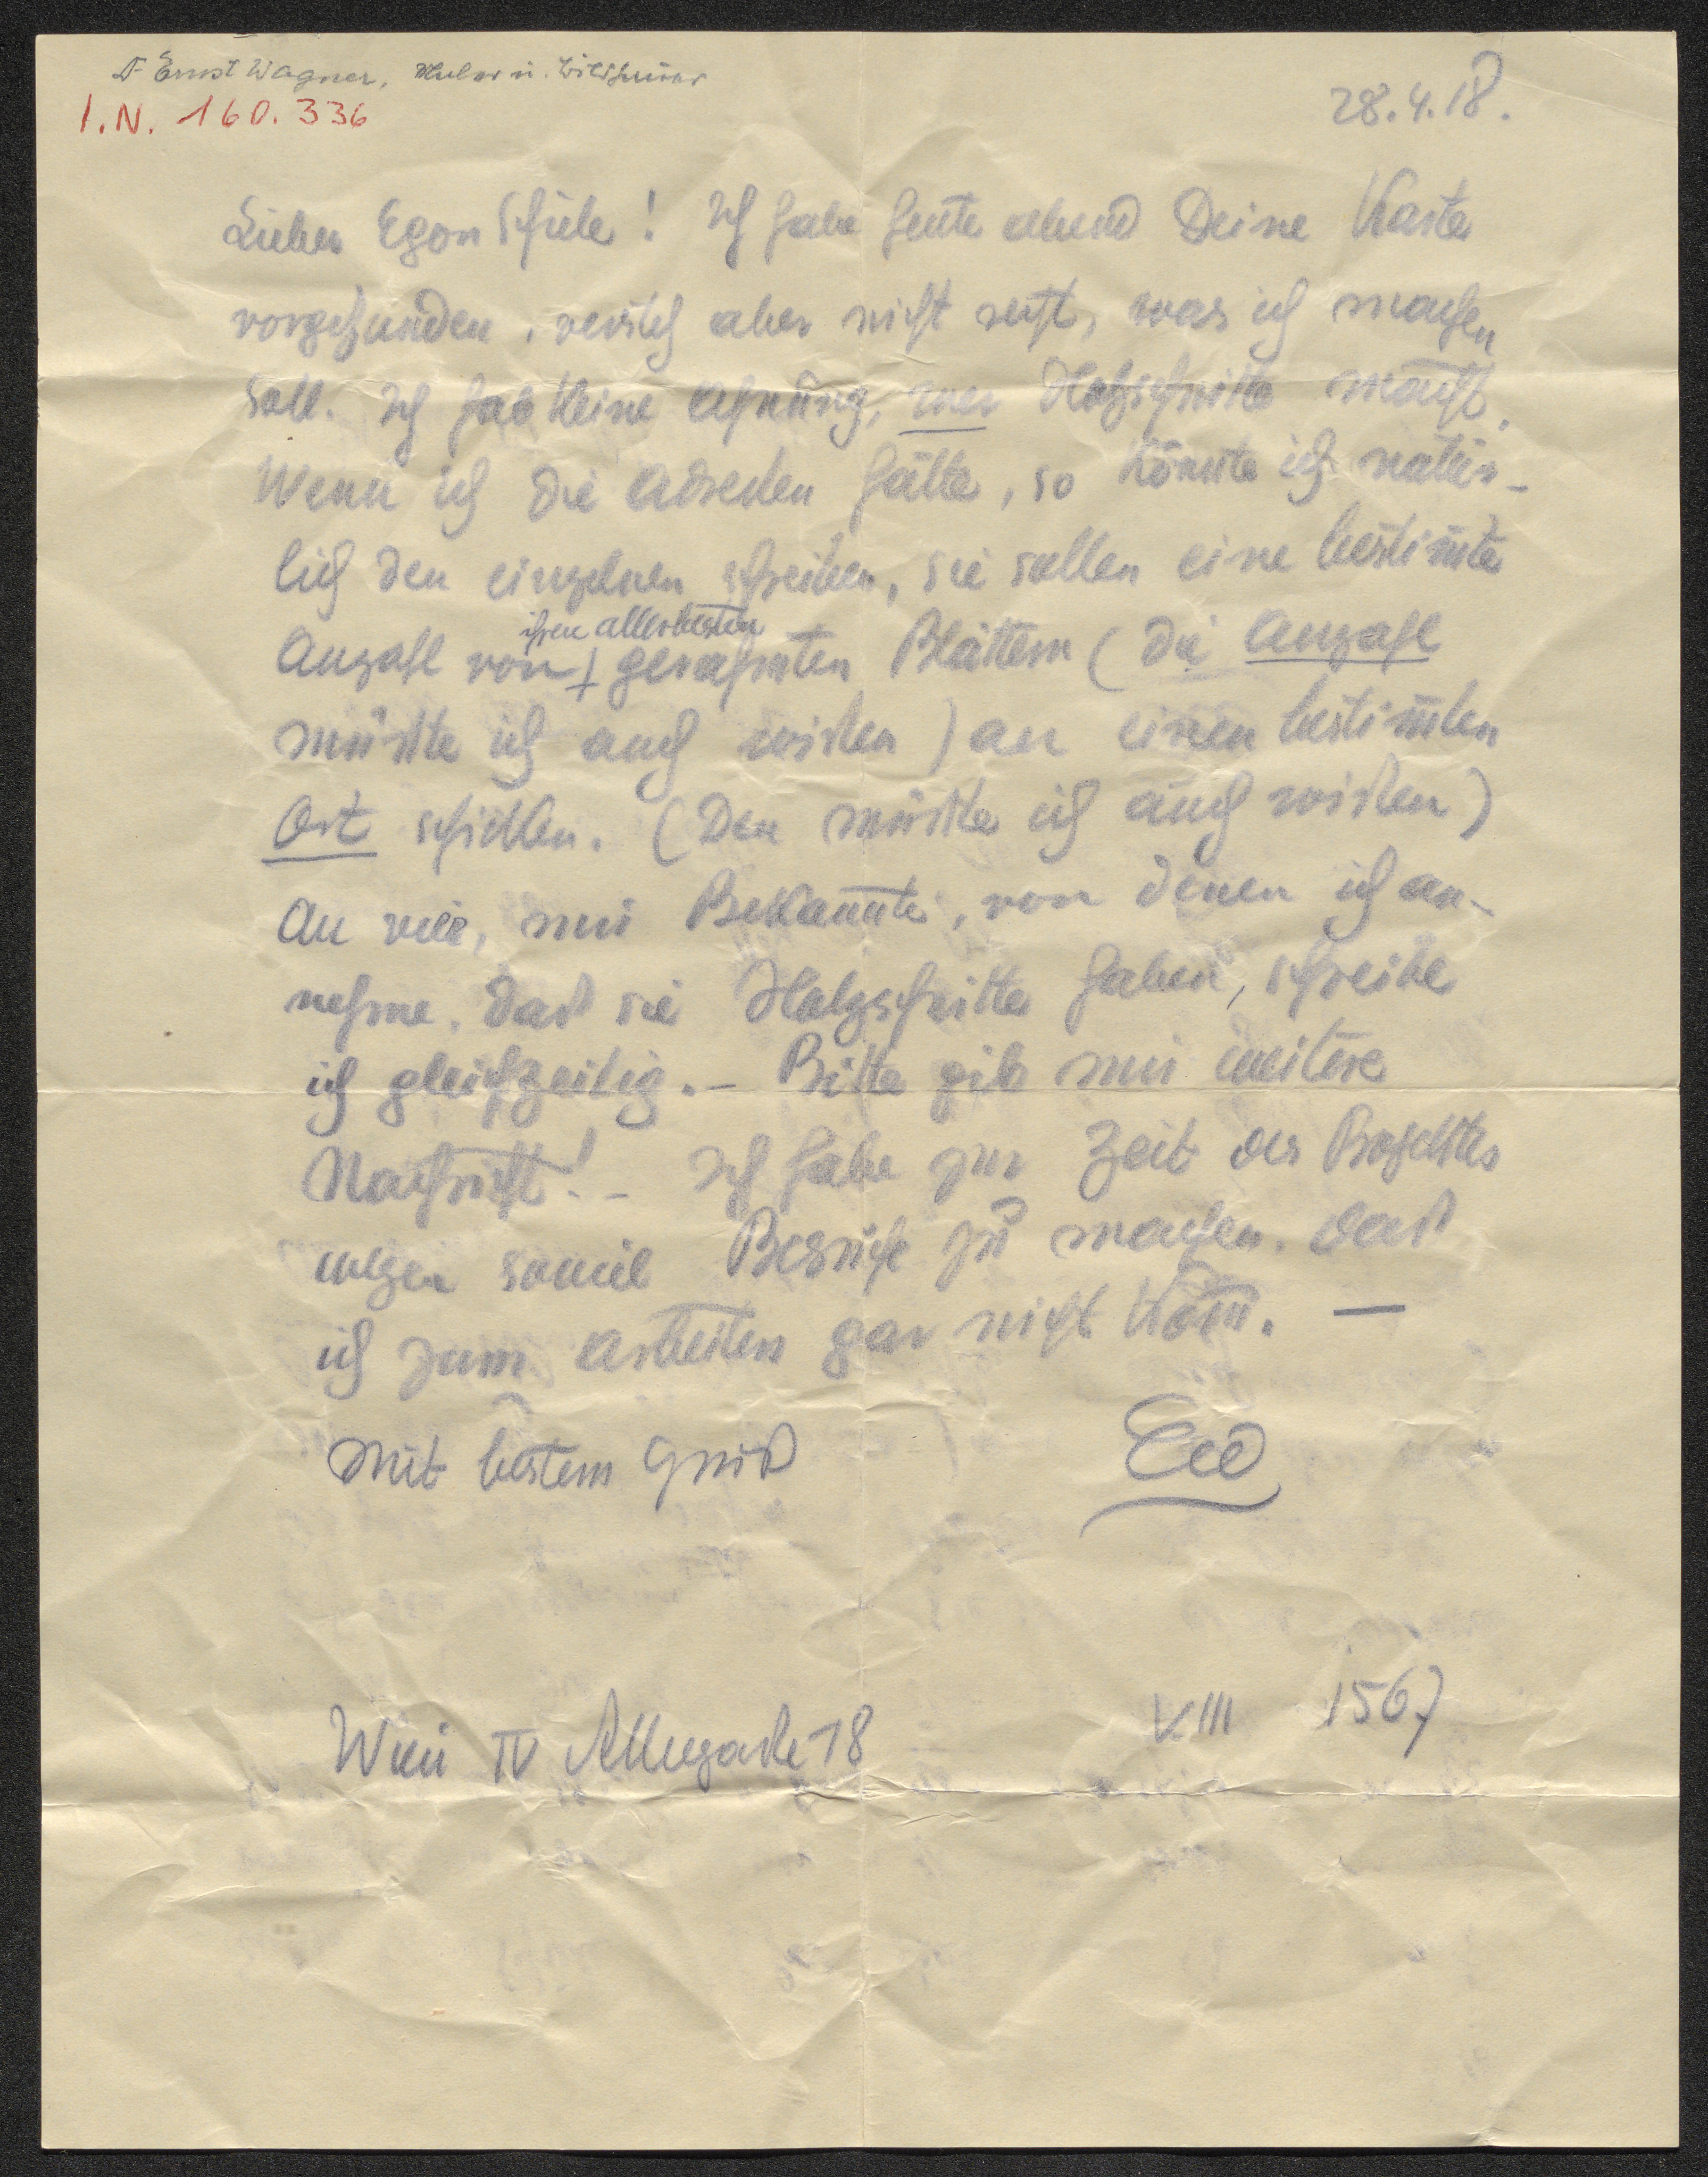 Dr Ernst Wagner, Maler u. Bildhauer
I.N. 160.336
28.4.18.
Lieber Egon Schiele! Ich habe heute abend Deine Karte
vorgefunden, versteh aber nicht recht, was ich machen
soll. Ich hab keine Ahnung, wer Holzschnitte macht.
Wenn ich die Adressen hätte, so könnte ich natür-
lich den einzelnen schreiben, sie sollen eine bestim̄te
Anzahl von ihren allerbesten gerahmten Blättern (die Anzahl
müsste ich auch wissen) an einen bestim̄ten
Ort schicken. (Den müsste ich auch wissen)
An vier, mir Bekannte, von denen ich an-
nehme, daß sie Holzschnitte haben, schreibe
ich gleichzeitig. – Bitte gib mir weitere
Nachricht! – Ich habe zur Zeit des Projektes
wegen soviel Besuche zu machen, daß
ich zum Arbeiten gar nicht kom̄. —
Mit bestem Gruß
Wien IV Alleegasse 18
VIII 1567